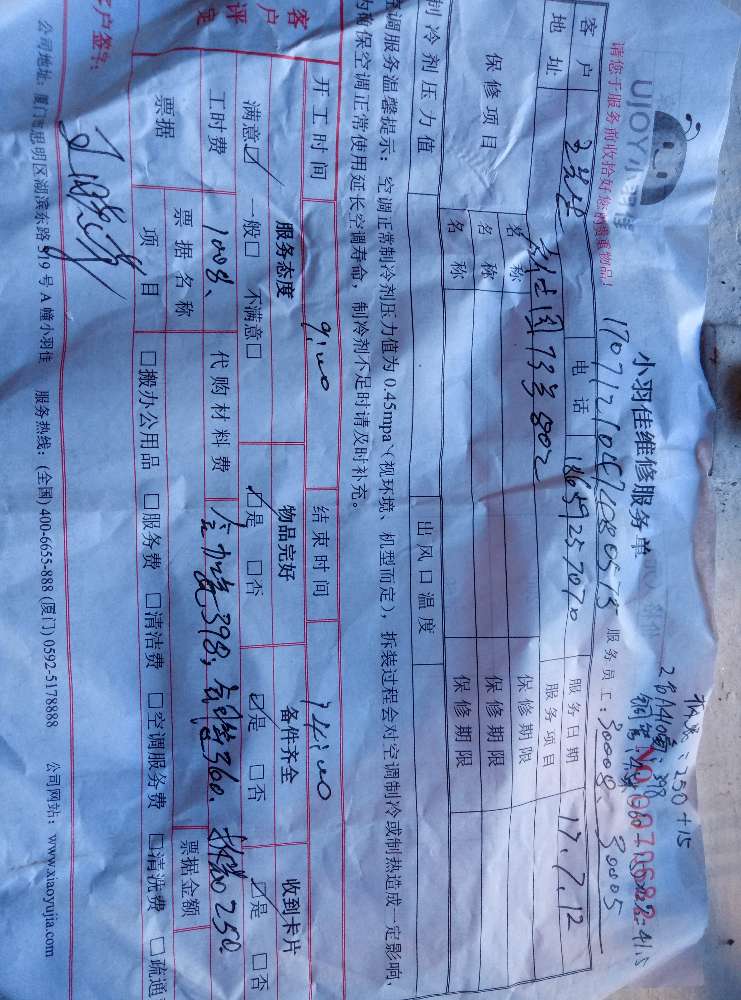 UJOY小羽佳
小羽佳维修服务单
NO.0070682
请您于服务前收拾好您的贵重物品!
服务员工: 30008、30005
客户 电话 18659257070 服务日期 17.7.12
地址 73号802 服务项目
保修项目 名称 保修期限
名称 保修期限
名称 保修期限
制冷剂压力值 出风口温度
空调服务温馨提示: 空调正常制冷剂压力值为 0.45mpa、(视环境、机型而定), 拆装过程会对空调制冷或制热造成一定影响,
为确保空调正常使用延长空调寿命, 制冷剂不足时请及时补充。
开工时间 9:00 结束时间 14:00
客户评定 服务态度 物品完好 备件齐全 收到卡片
满意☑ 一般□ 不满意□ ☑是 □否 ☑是 □否 ☑是 □否
工时费 代购材料费 398, 360, 250
票据 票据名称 票据金额
项目 □搬办公用品 □服务费 □清洁费 □空调服务费 □清洗费 □疏通
客户签字:
公司地址: 厦门思明区湖滨东路319号A幢小羽佳 服务热线: (全国) 400-6655-888 (厦门) 0592-5178888 公司网站: www.xiaoyujia.com